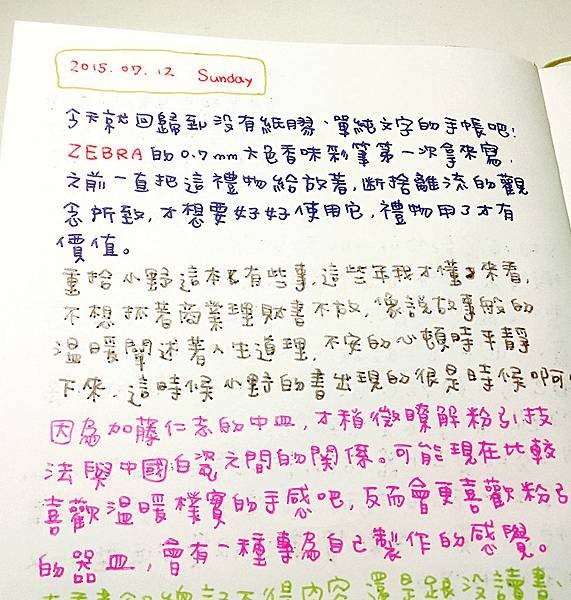 2015.07.12 Sunday
今天就回歸到沒有紙膠、單純文字的手帳吧!
ZEBRA的0.7mm六色香味彩筆第一次拿來寫,
之前一直把這禮物給放著,斷捨離流的觀
念所致,才想要好好使用它,禮物用了才有
價值。
重拾小野這本《有些事,這些年我才懂》來看,
不想抹著商業理財書不放,像說故事般的
溫暖闡述著人生道理,不安的心頓時平靜
下來,這時候小野的書出現的很是時候啊
因為加藤仁志的中皿,才稍微瞭解粉引技
法與中國白瓷之間的關係。可能現在比較
喜歡溫暖樸實的手感吧,反而會更喜歡粉引
的器皿,會有一種專為自己製作的感覺。
內容,還是跟沒讀書